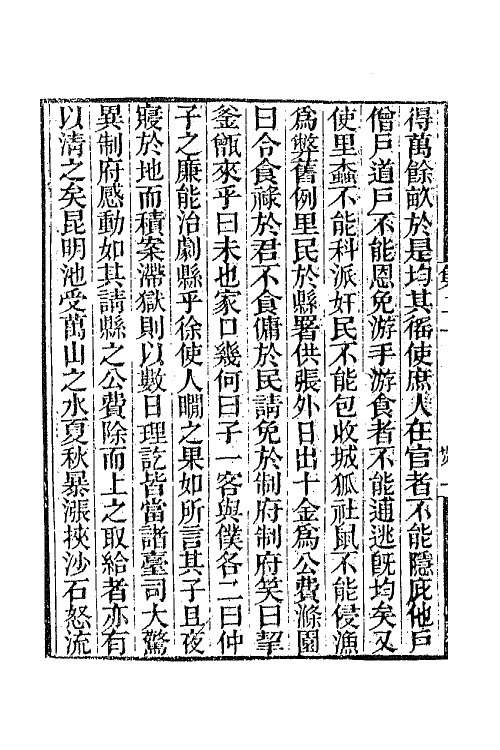 得萬餘畝於是均其徭使庶人在官者不能隱庇他戶
僧戶道戶不能恩免游手游食者不能逋逃既均矣又
使里蠹不能科派奸民不能包收城狐社鼠不能侵漁
為弊舊例里民於縣署供張外日出十金為公費滌園
曰今食祿於君不食傭於民請免於制府制府笑曰挈
釜甑來乎曰未也家口幾何曰子一客與僕各二曰仲
子之廉能治劇縣乎徐使人瞷之果如所言其子且夜
寢於地而積案滯獄則以數日理訖皆當諸臺司大驚
異制府感動如其請縣之公費除而上之取給者亦有
以清之矣昆明池受萬山之水夏秋暴漲挾沙石怒流